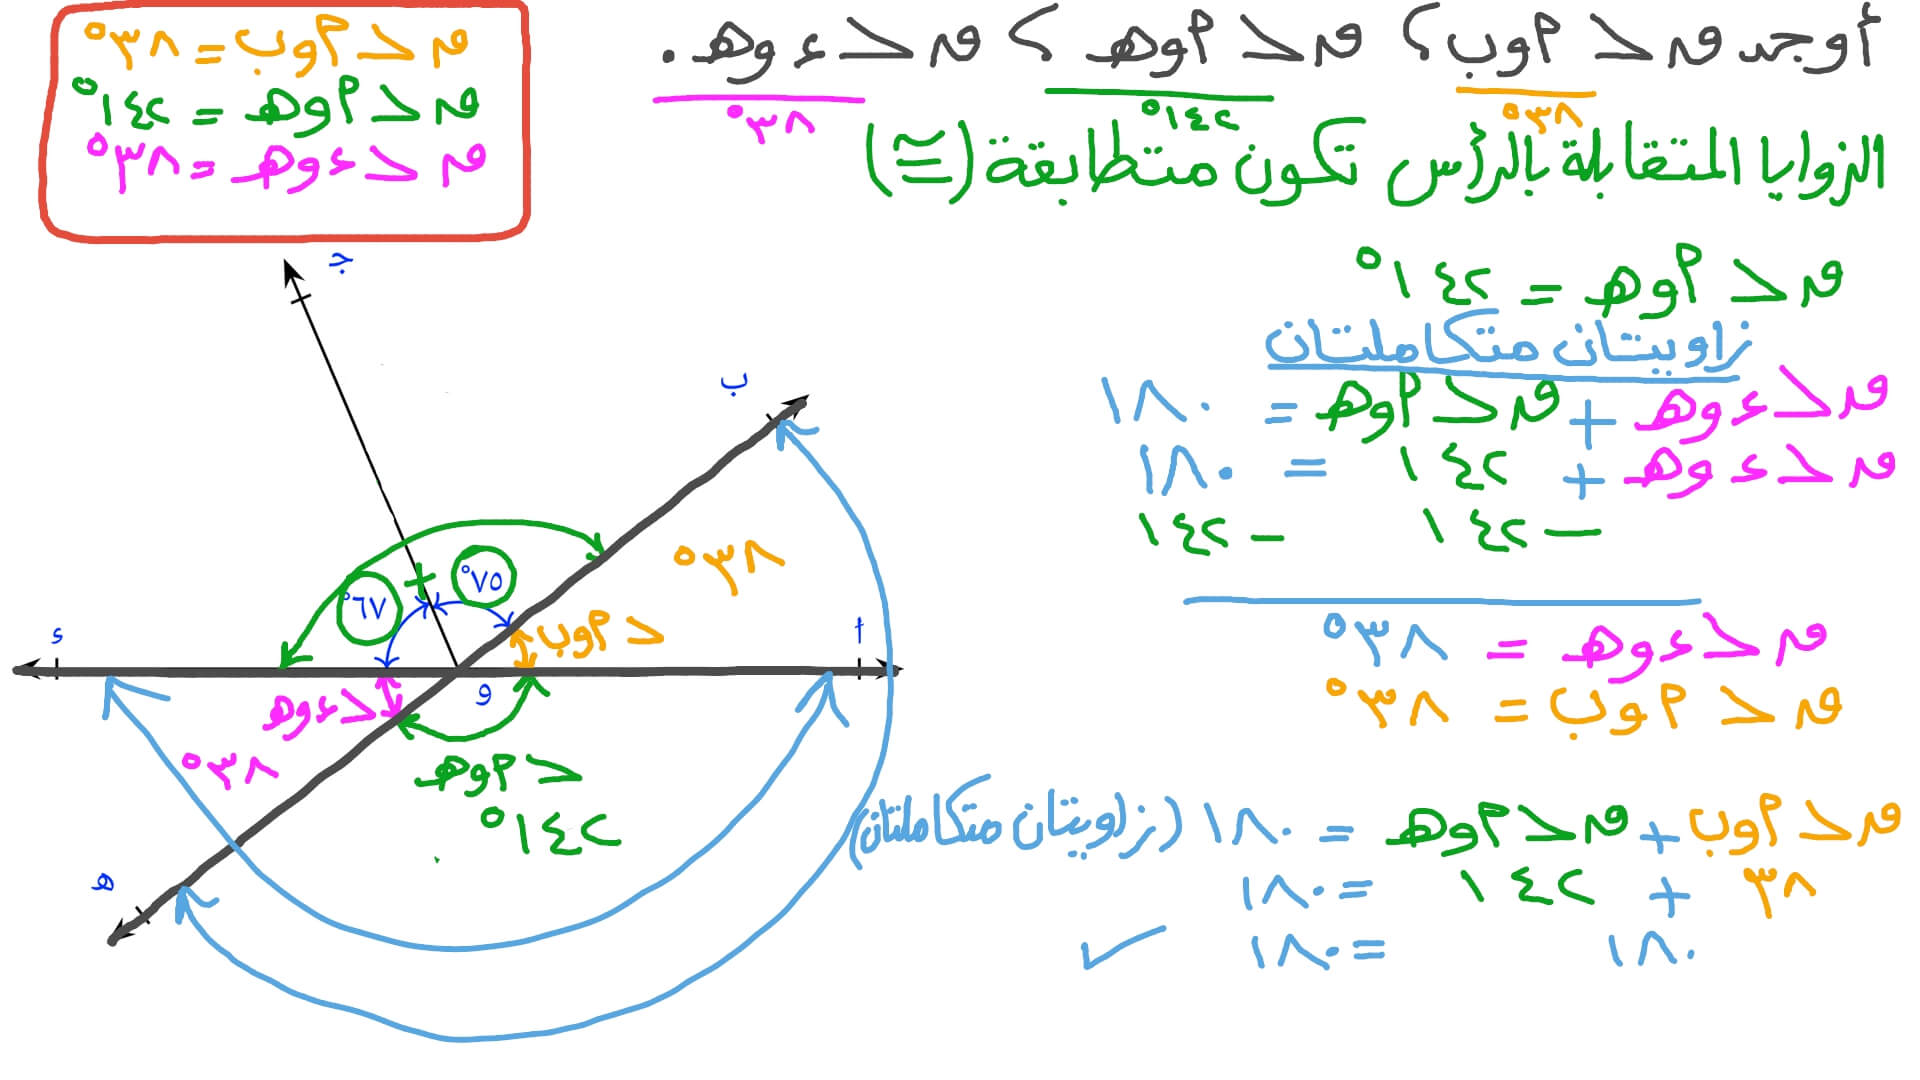 أوجد ق> أوب؟ ق> أوهـ؟ ق> ءوهـ.
٣٨° ١٤٢° ٣٨°
الزوايا المتقابلة بالرأس تكون متطابقة (≅)
ق> أوب = ٣٨°
ق> أوهـ = ١٤٢°
ق> ءوهـ = ٣٨°
ق> أوهـ = ١٤٢°
زاويتان متكاملتان
ق> ءوهـ + ق> أوهـ = ١٨٠
ق> ءوهـ + ١٤٢ = ١٨٠
− ١٤٢ − ١٤٢
ق> ءوهـ = ٣٨°
ق> أوب = ٣٨°
ق> أوب + ق> أوهـ = ١٨٠ (زاويتان متكاملتان)
٣٨ + ١٤٢ = ١٨٠
١٨٠ = ١٨٠ ✓
جـ
ب
٣٨°
٧٥° + ٦٧°
> أوب
أ
ء
و
> ءوهـ
٣٨°
> أوهـ
١٤٢°
هـ